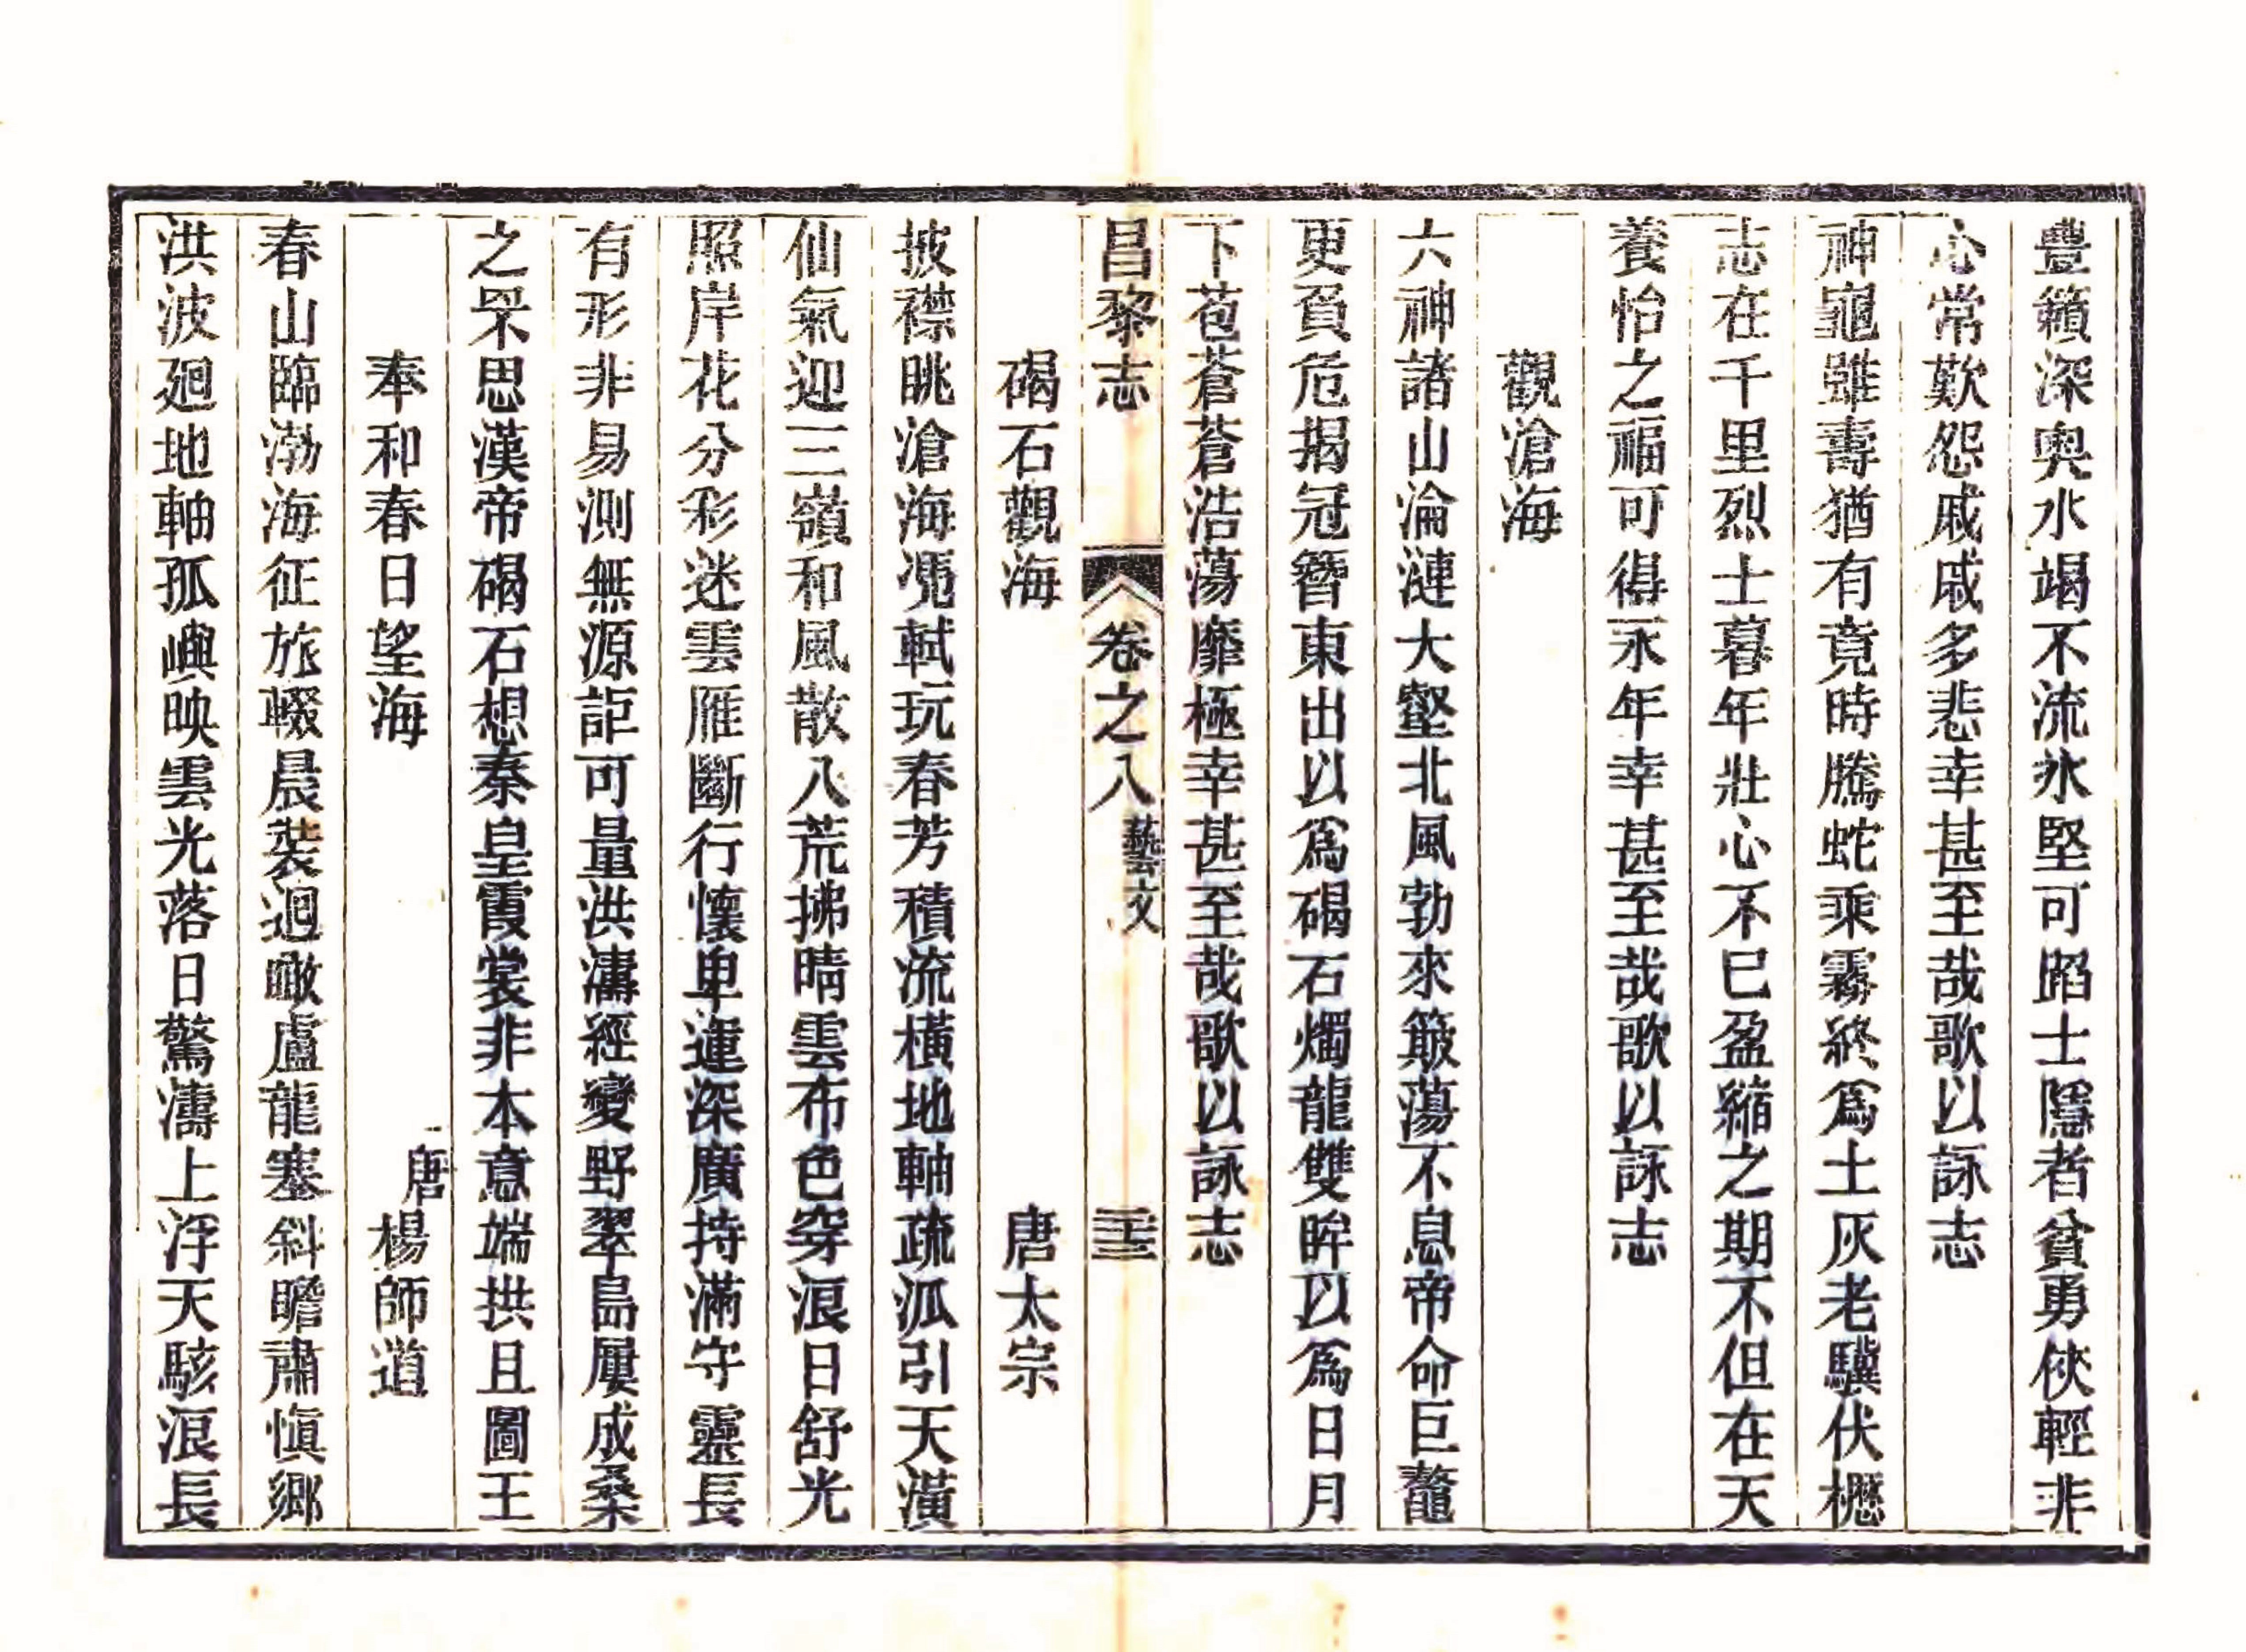 豐籟深奧水竭不流氷堅可蹈士隱者貧勇俠輕非
心常歎怨戚戚多悲幸甚至哉歌以詠志
神龜雖壽猶有竟時騰蛇乘霧終爲土灰老驥伏櫪
志在千里烈士暮年壯心不巳盈縮之期不但在天
養怡之福可得永年幸甚至哉歌以詠志
觀滄海
六神諸山淪漣大壑北風勃來簸蕩不息帝命巨鼇
更負危揭冠簪東出以爲碣石燭龍雙眸以爲日月
下苞蒼蒼浩蕩靡極幸甚至哉歌以詠志
昌黎志 卷之八 藝文 三十三
碣石觀海 唐太宗
披襟眺滄海凴軾玩春芳積流橫地軸疏泒引天潢
仙氣迎三嶺和風散八荒拂晴雲布色穿浪日舒光
照岸花分彩迷雲雁斷行懷卑運深廣持滿守靈長
有形非易測無源詎可量洪濤經變野翠島屢成桑
之罘思漢帝碣石想秦皇霞裳非本意端拱且圖王
奉和春日望海 唐楊師道
春山臨渤海征旅輟晨裝迴瞰盧龍塞斜瞻肅慎鄉
洪波廻地軸孤嶼映雲光落日驚濤上浮天駭浪長